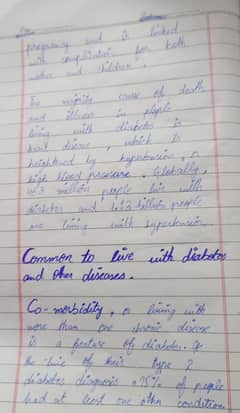 pregnancy and is linked
with complication for both
mother and children.
The majority cause of death
and illness in people
living with diabetes is
heart disease, which is
heightened by hypertension, or
high blood pressure. Globally,
million people live with
diabetes and 1.3 billion people
are living with hypertension.
Common to live with diabetes
and other diseases.
Co-morbidity, or living with
more than one chronic disease
is a feature of diabetes. At
the time of their type 2
diabetes diagnosis 75% of people
had at least one other condition